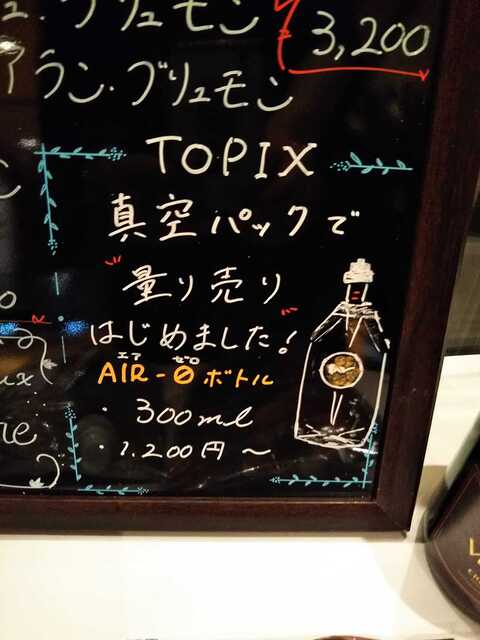 ブリュモン
3,200
アラン・ブリュモン
TOPIX
真空パックで
"量り売り"
はじめました!
エア ゼロ
AIR-0ボトル
・300ml
・1.200円~